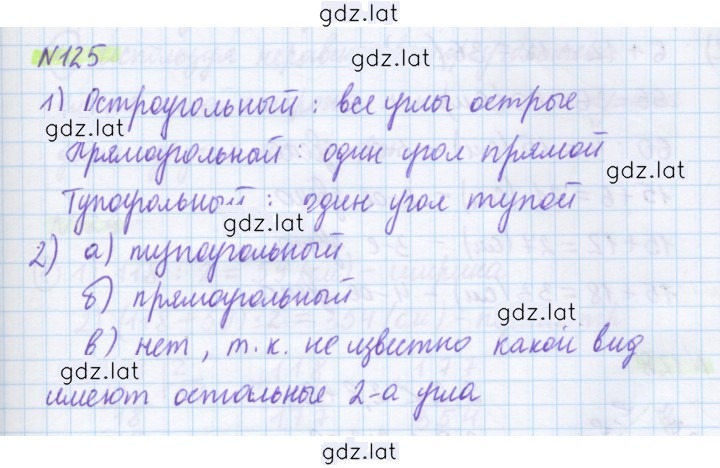 gdz.lat
N125
gdz.lat
1) Остроугольный: все углы острые
gdz.lat
Прямоугольной: один угол прямой
gdz.lat
Тупоугольный: один угол тупой
gdz.lat
2) а) тупоугольный
б) прямоугольный
gdz.lat
в) нет, т.к. не известно какой вид
gdz.lat
имеют остальные 2-а угла
gdz.lat